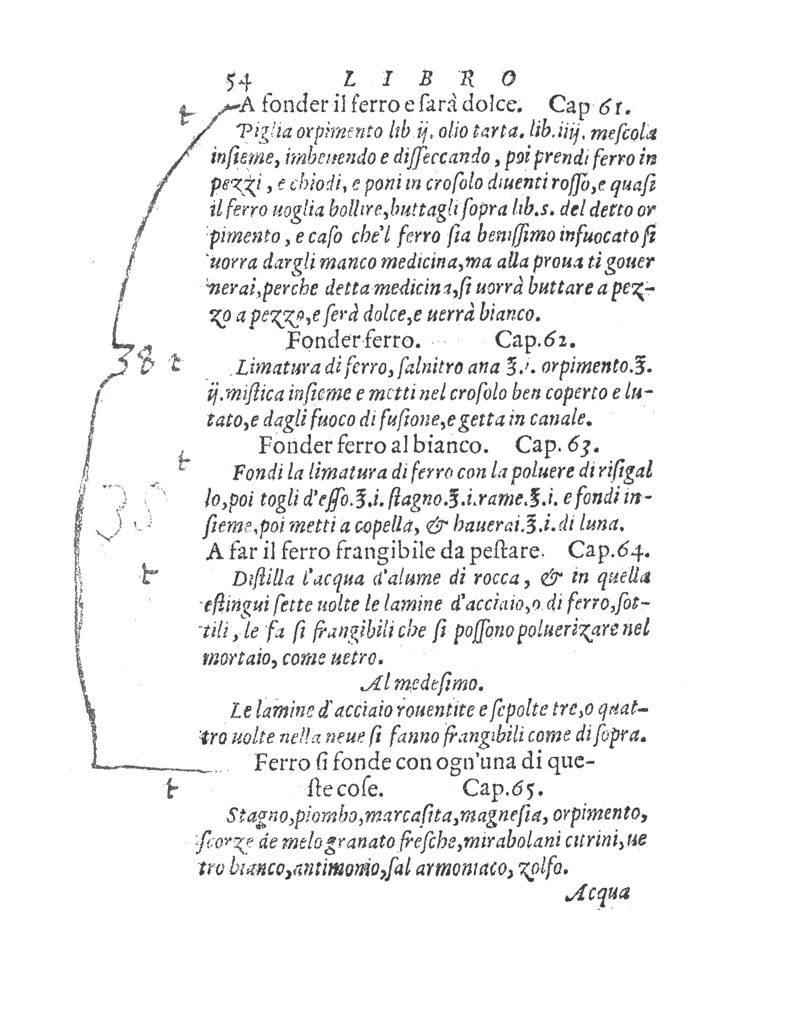 54 LIBRO
t A fonder il ferro e sarà dolce. Cap 61.
Piglia orpimento lib ij. olio tarta. lib. iiij. meſcola
inſieme, imbeuendo e diſſeccando, poi prendi ferro in
pezzi, e chiodi, e poni in croſolo diuenti roſſo, e quaſi
il ferro uoglia bollire, buttagli ſopra lib.s. del detto or
pimento, e caſo che'l ferro ſia beniſſimo infuocato ſi
uorra dargli manco medicina, ma alla proua ti gouer
nerai, perche detta medicina, ſi uorrà buttare a pez-
zo a pezzo, e ſerà dolce, e uerrà bianco.
Fonder ferro. Cap.62.
38 t Limatura di ferro, ſalnitro ana ℥.i. orpimento.℥.
ij. miſtica inſieme e metti nel croſolo ben coperto e lu-
tato, e dagli fuoco di fuſione, e getta in canale.
Fonder ferro al bianco. Cap. 63.
t Fondi la limatura di ferro con la poluere di riſigal
lo, poi togli d'eſſo.℥.i. ſtagno.℥.i. rame.℥.i. e fondi in-
ſieme, poi metti a copella, & hauerai.℥.i. di luna.
A far il ferro frangibile da peſtare. Cap.64.
t Diſtilla l'acqua d'alume di rocca, & in quella
eſtingui ſette uolte le lamine d'acciaio, o di ferro, ſot-
tili, le fa ſi frangibili che ſi poſſono poluerizare nel
mortaio, come uetro.
Al medeſimo.
Le lamine d'acciaio rouentite e ſepolte tre, o quat-
tro uolte nella neue ſi fanno frangibili come di ſopra.
Ferro ſi fonde con ogn'una di que-
t ſte coſe. Cap.65.
Stagno, piombo, marcaſita, magneſia, orpimento,
ſcorze de melo granato freſche, mirabolani citrini, ue
tro bianco, antimonio, ſal armoniaco, zolfo.
Acqua